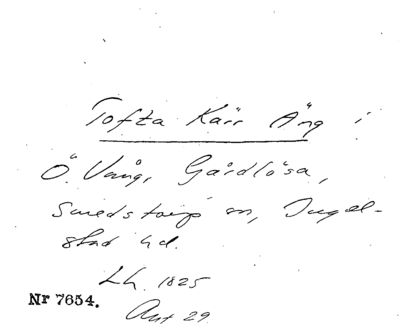 Tofta Kärr Äng i
Ö. Vång, Gårdlösa,
Smedstorp sn, Ingel-
stad hd.
Lh. 1825
Nr 7654.
Akt 29